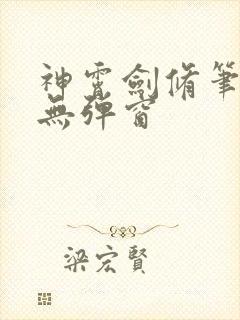 神霄劍脩筆
無彈窗
梁宏賢